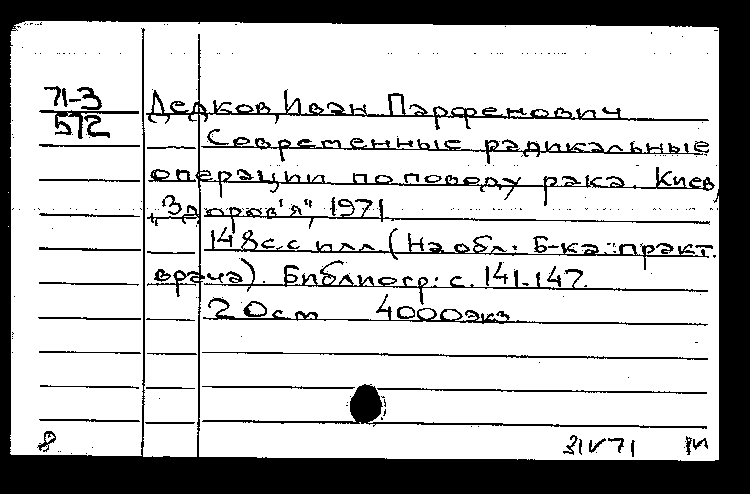 71-3
572
Дедков, Иван Парфенович
Современные радикальные
операции по поводу рака. Киев,
„Здоров'я", 1971
148с. с илл (На обл.: Б-ка практ.
врача). Библиогр: с. 141-147.
20см 4000экз
8 31 V 71